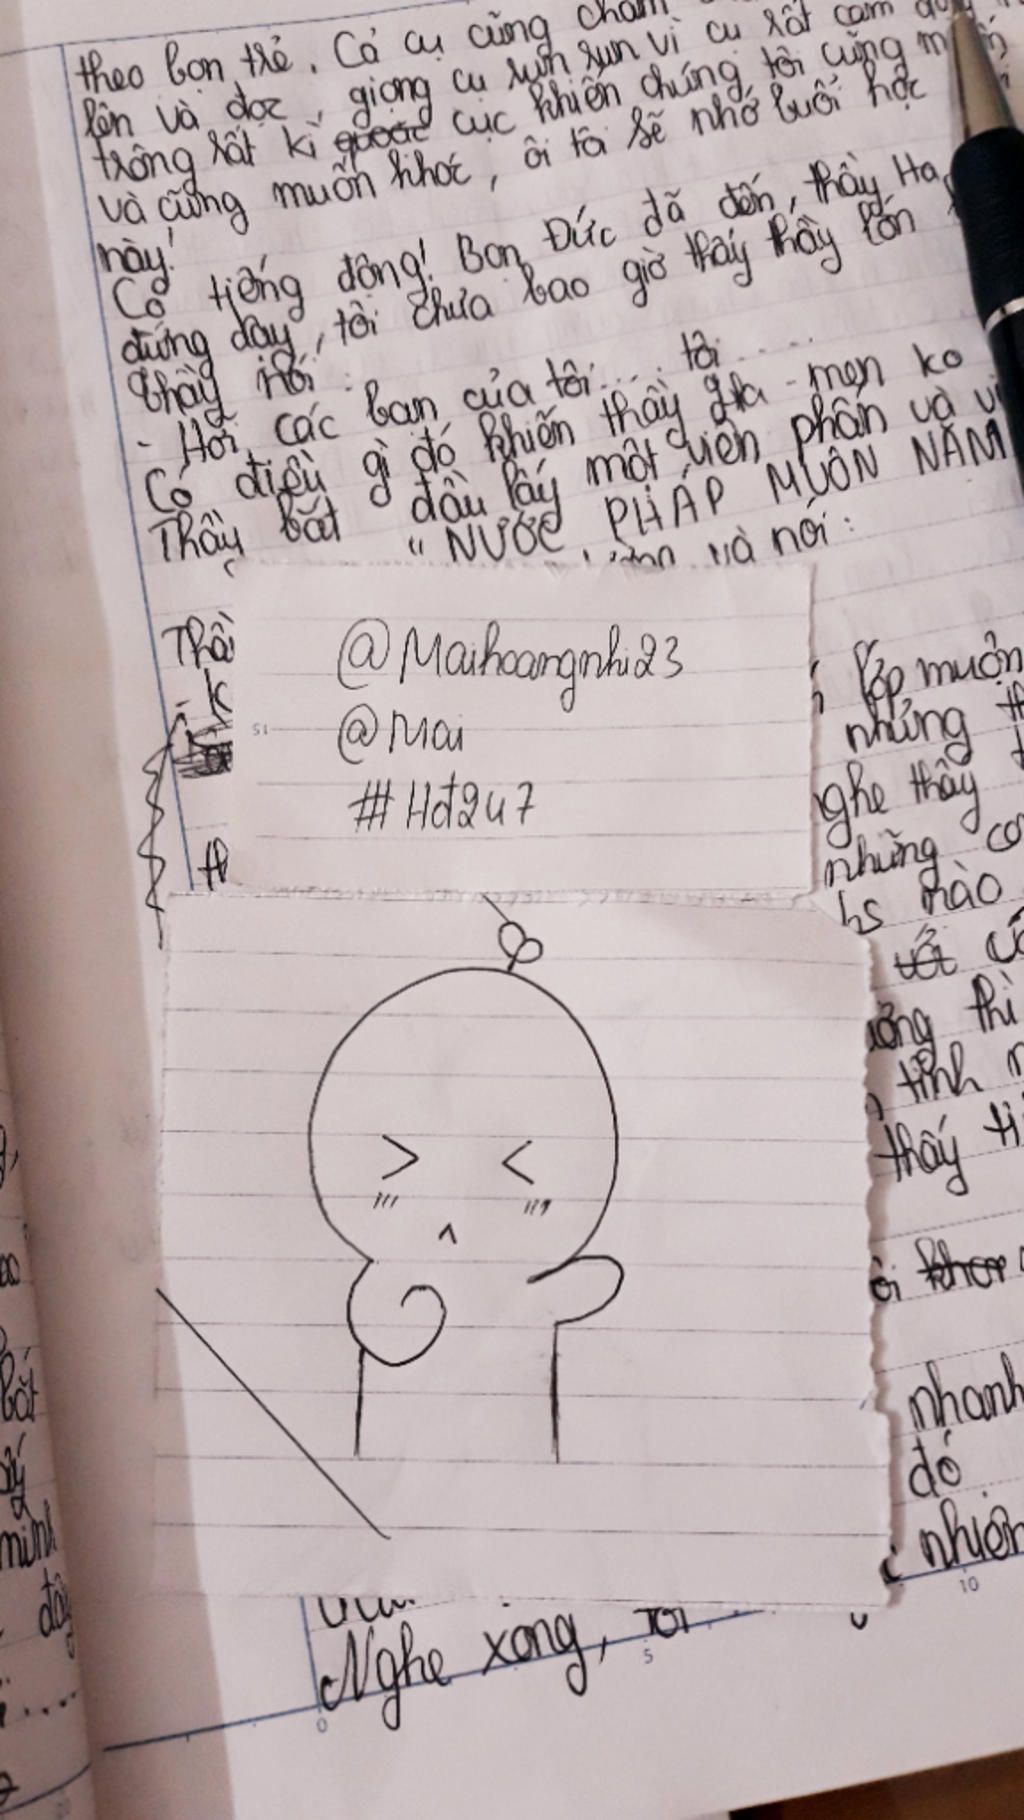 theo bọn trẻ. Cả cụ cũng chăm
lên và đọc, giọng cụ run run vì cụ rất cảm động
trông rất kì cục khiến chúng tôi cũng muốn
và cũng muốn khóc, ôi tôi sẽ nhớ buổi học
này!
Có tiếng động! Bọn Đức đã đến, thầy Ha
đứng dậy, tôi chưa bao giờ thấy thầy lớn
thầy nói:
- Hỡi các bạn của tôi.... tôi .....
Có điều gì đó khiến thầy Ha-men ko
Thầy bắt đầu lấy một viên phấn và vi
"NƯỚC PHÁP MUÔN NĂM
và nói:
Thầ
- k
th
@Maihoangnhi23
@Mai
51
#Hđ247
lớp muộn
những th
nghe thầy
những co
hs nào
với
ưởng thì
tình
thấy ti
ôi
nhanh
đó.
nhiên
Nghe xong, tôi
0
5
10
bắt
mình